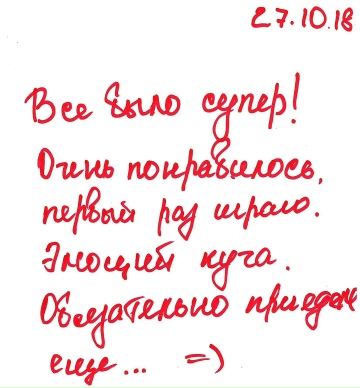 27.10.18
Все было супер!
Очинь понравилось,
первый раз играло.
Эмоций куча.
Обезательно приедем
еще... =)